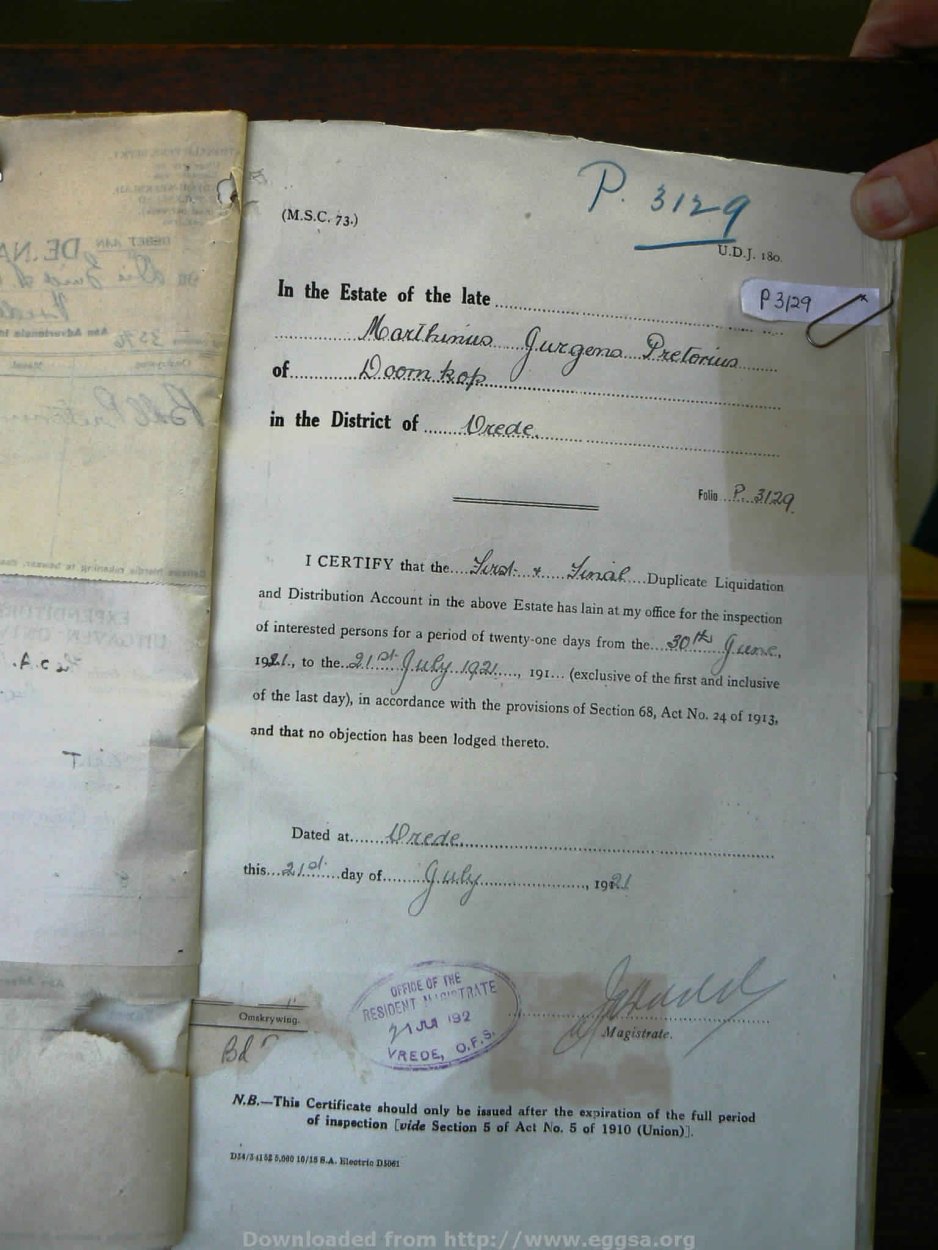 P. 3129
(M.S.C. 73.)
U.D.J. 180.
P 3129
In the Estate of the late
Marthinus Jurgens Pretorius
of Doornkop
in the District of Vrede.
Folio P. 3129.
I CERTIFY that the First & Final Duplicate Liquidation
and Distribution Account in the above Estate has lain at my office for the inspection
of interested persons for a period of twenty-one days from the 30th June,
1921, to the 21st July 1921, 191... (exclusive of the first and inclusive
of the last day), in accordance with the provisions of Section 68, Act No. 24 of 1913,
and that no objection has been lodged thereto.
Dated at Vrede.
this 21st day of July, 1921
OFFICE OF THE
RESIDENT MAGISTRATE
21 JUL 192
VREDE, O.F.S.
Magistrate.
Omskrywing.
Bd
N.B.—This Certificate should only be issued after the expiration of the full period
of inspection [vide Section 5 of Act No. 5 of 1910 (Union)].
S.A. Electric D5061
Downloaded from http://www.eggsa.org